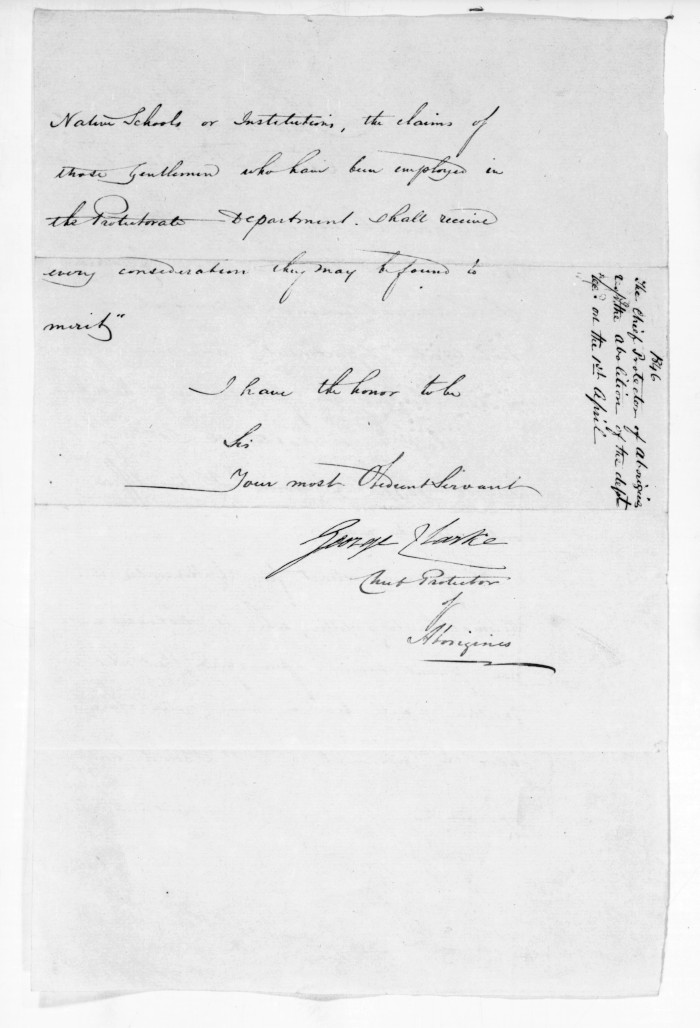 Native Schools or Institutions, the claims of
those Gentlemen who have been employed in
the Protectorate Department. shall receive
every consideration they may be found to
merit"
I have the honor to be
Sir
Your most Obedient Servant
George Clarke
Chief Protector
of
Aborigines
1846
The Chief Protector of Aborigines
the abolition of the dept
on the 1st April